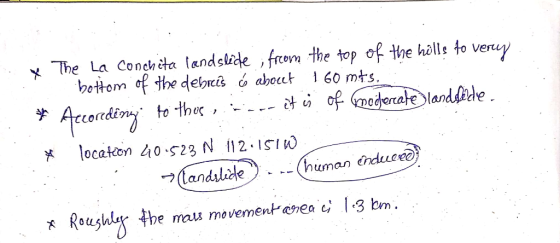 * The La Conchita landslide, from the top of the hills to very
bottom of the debris is about 160 mts.
* According to this, ---- it is of moderate landslide.
* location 40.523 N 112.151W
→ landslide --- human induced
* Roughly the mass movement area is 1.3 km.